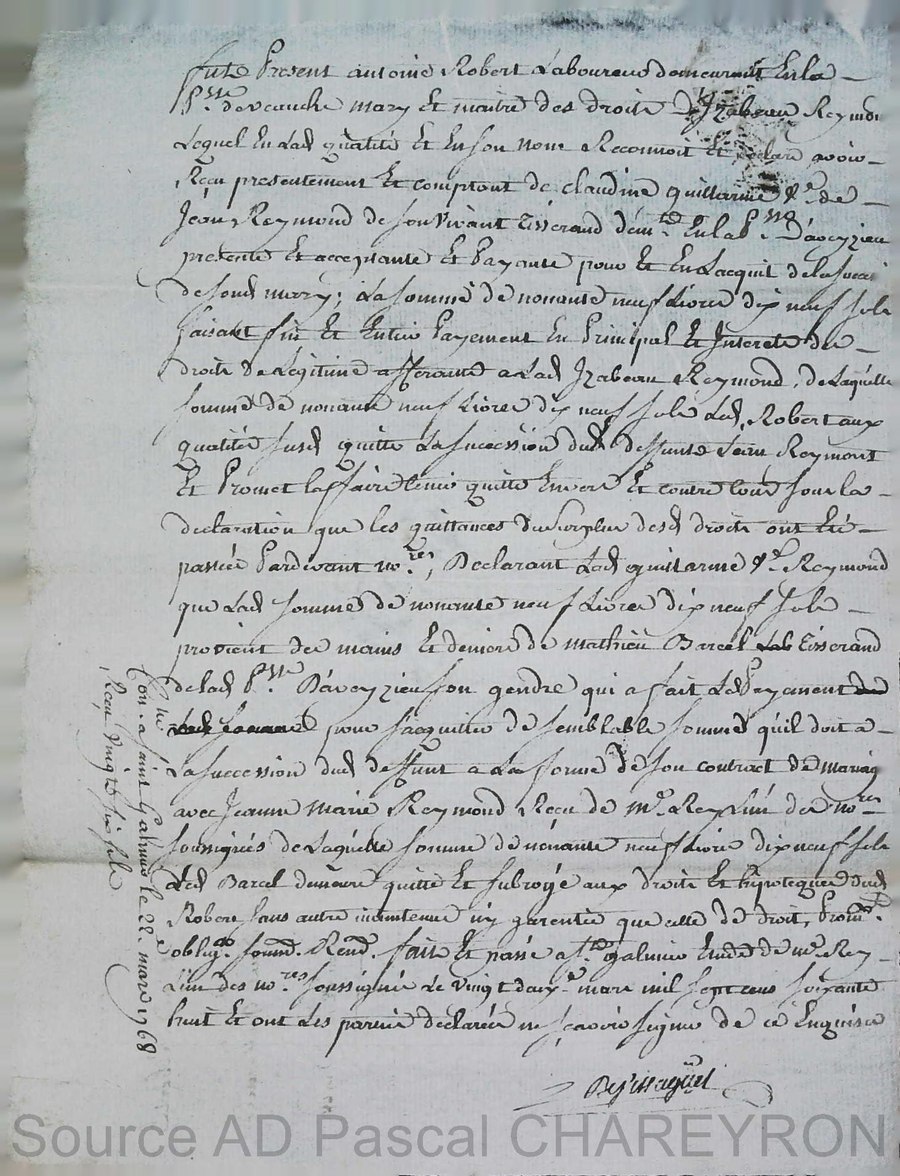 fute Present antoine Robert Laboureur demeurant En la
P.sse de veauche mary et maitre des droits d'Izabeau Reymond
Lequel En Lad qualité Et En son nom Reconnoit Et declare avoir
Reçu presentement Et comptant de claudine guillarme v.e de
Jean Reymond de son vivant Tisserand dem.t En la P.sse D'aveyzieu
presente Et acceptante Et Payante pour Et En Lacquit de la succ
de sond mary; La somme de nonante neuf Livres dix neuf sols
faisant fin Et Entier Payement En Principal Et Interets des
droits de Légitime afferants a Lad Izabeau Reymond, de Laquelle
somme de nonante neuf Livres dix neuf sols Led Robert aux
qualités susd quitte La succession dud deffunt Jean Reymont
Et Promet La ffaire tenir quitte Envers Et contre tous sous la
declaration que les quittances du surplus desd droits ont Eté
passées Pardevant no.res, Declarant Lad guillarme v.e Reymond
que Lad somme de nonante neuf Livres dix neuf sols
provient des mains Et deniers de mathieu Barcel Tisserand
de lad P.sse D'aveyzieu son gendre qui a fait Led Payement
pour s'acquitter de semblable somme qu'il doit a
La succession dud deffunt a La forme de son contract de mariag
avec Jeanne Marie Reymond Reçu de M.e Rey L'un des no.res
soussignés de Laquelle somme de nonante neuf Livres dix neuf sols
Led Barcel demeure quitte Et subrogé aux droits Et hipoteques dud
Robert sans autre maintenue n'y garentie que celle de droit, Prom.
oblig.on soum. Renon. fait Et passé a S.t galmier Etude de M.e Rey
L'un des no.res soussignés Le vingt deux.e mars mil sept cens soixante
huit Et ont Les parties declarées ne sçavoir signer de ce Enquises
Con.lé a Saint Galmier le 22. mars 1768
Reçu vingt six sols